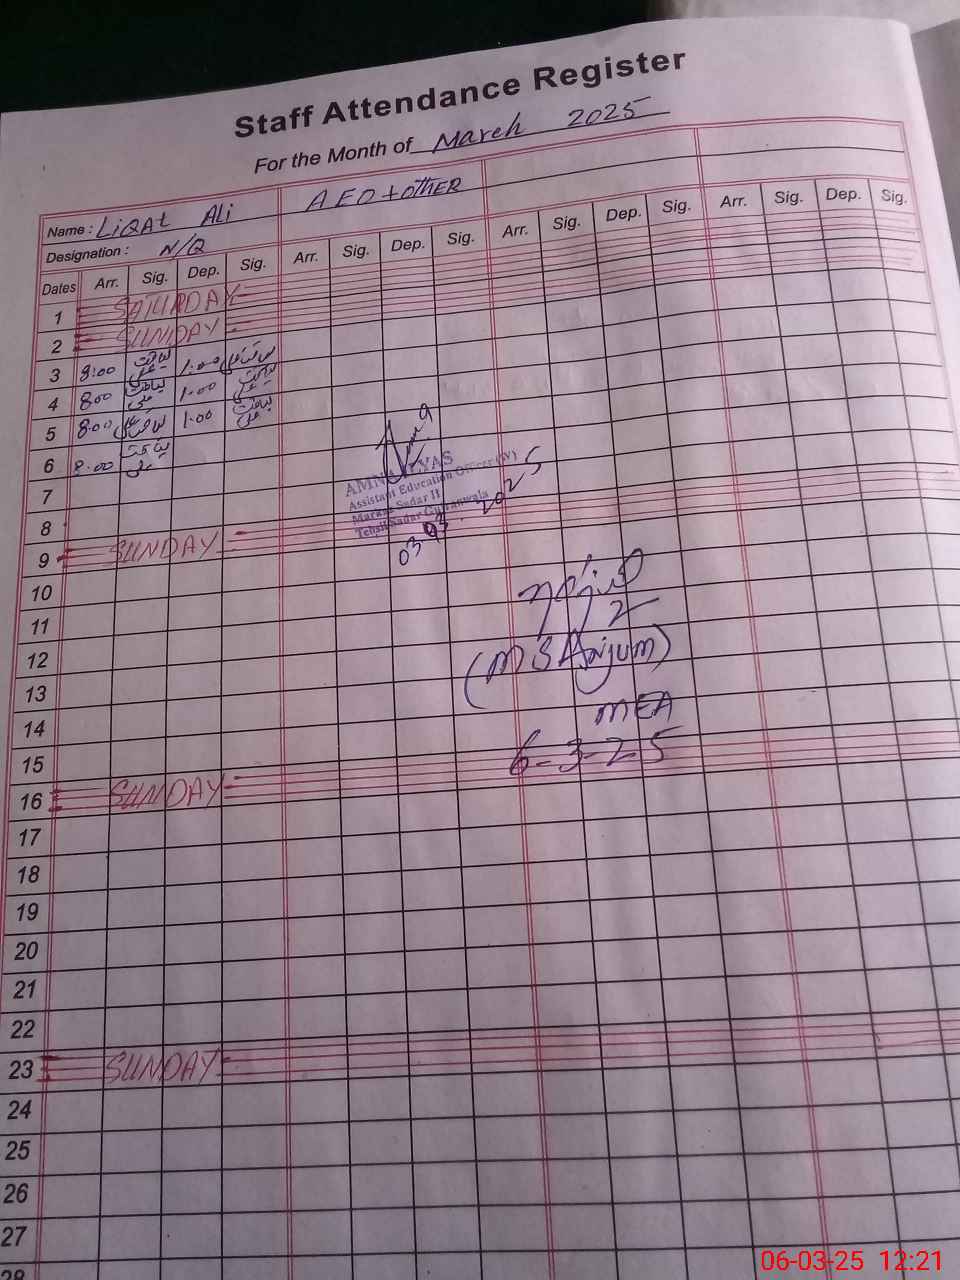 Staff Attendance Register
For the Month of March 2025
Name : LiQAt Ali
AEO + otHER
Designation : N/Q
Dates Arr. Sig. Dep. Sig. Arr. Sig. Dep. Sig. Arr. Sig. Dep. Sig. Arr. Sig. Dep. Sig.
1 SATURDAY
2 SUNDAY
3 8:00 لیاقت علی 1:00 لیاقت علی
4 8:00 لیاقت علی 1:00 لیاقت علی
5 8:00 لیاقت علی 1:00 لیاقت علی
6 8:00 لیاقت علی
7
8
9 SUNDAY
AMNA ILYAS
Assistant Education Officer (W)
Markaz Sadar II
Tehsil Sadar Gujranwala
03 03. 2025
10
11
12
(MS Anjum)
13
14
MEA
15
6-3-25
16 SUNDAY
17
18
19
20
21
22
23 SUNDAY
24
25
26
27
28
06-03-25 12:21